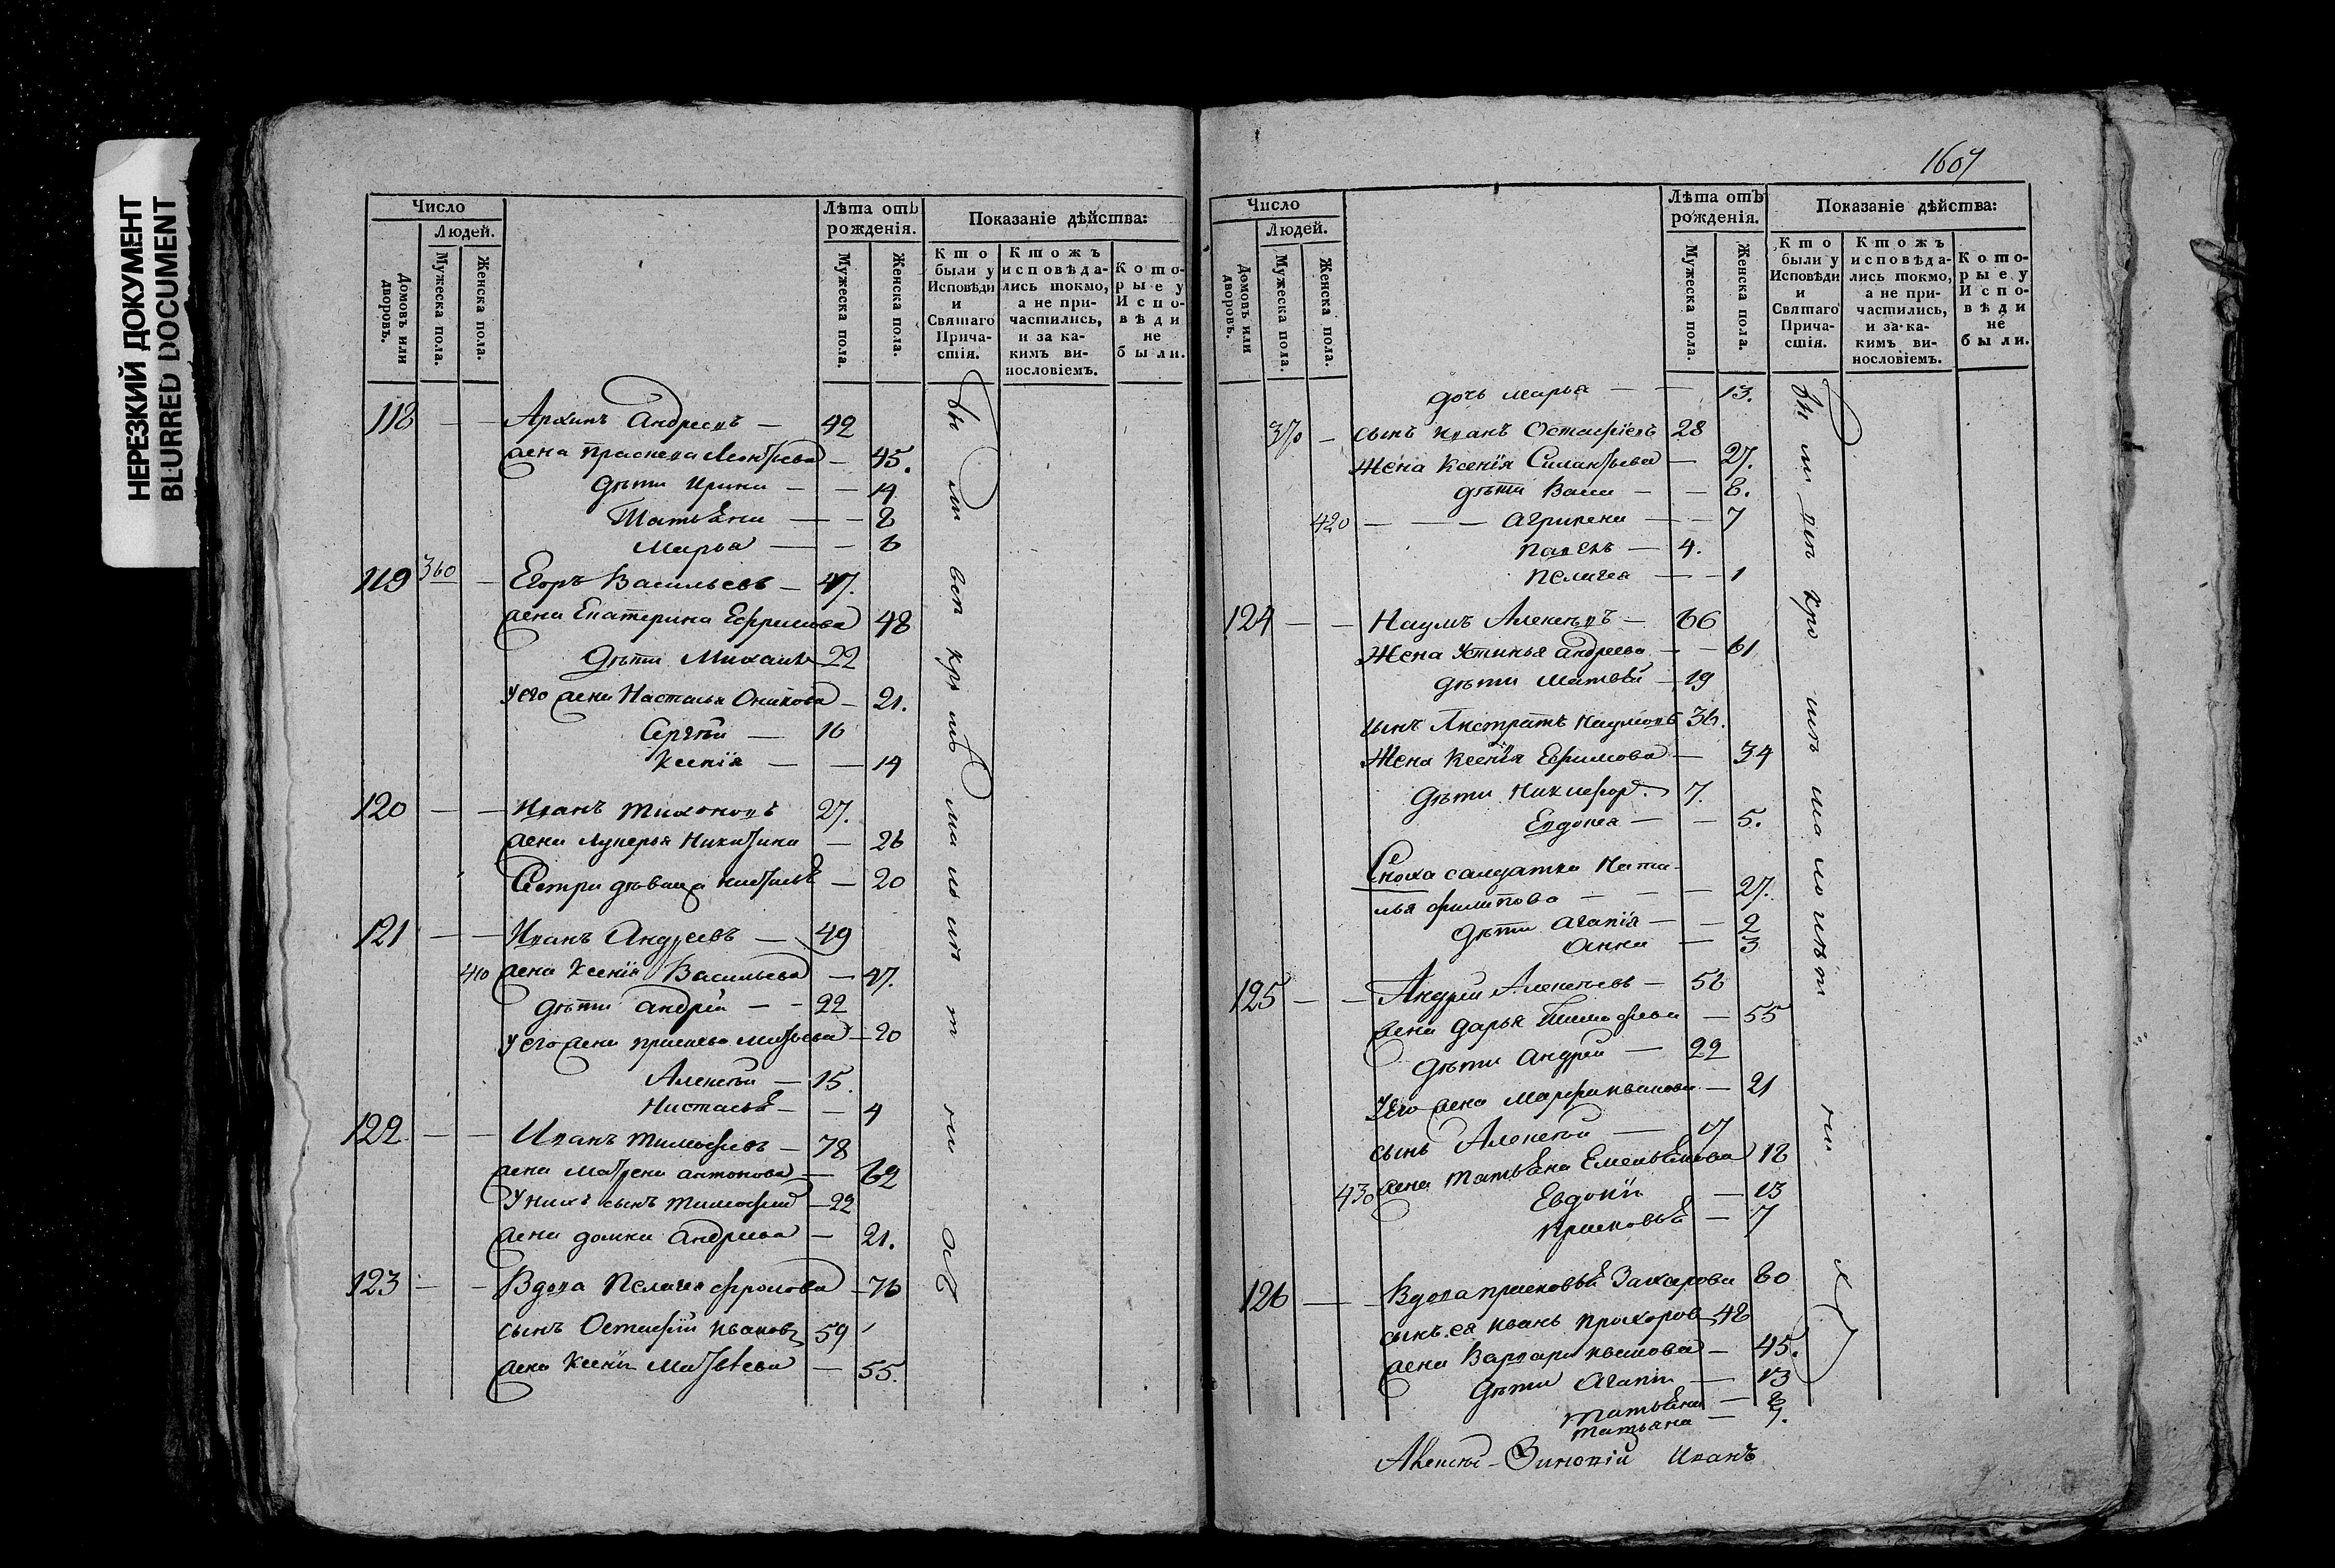 НЕРЕЗКИЙ ДОКУМЕНТ
BLURRED DOCUMENT
Число
Людей.
Домовъ или дворовъ.
Мужеска пола.
Женска пола.
Лѣта отъ рожденія.
Мужеска пола.
Женска пола.
Показаніе дѣйства:
Кто были у Исповѣди и Святаго Прича-стія.
Ктожъ исповѣда-лись токмо, а не при-частились, и за ка-кимъ ви-нословіемъ.
Кото-рые у Испо-вѣди не были.
118 — — Архипъ Андреевъ — 42
жена Прасковья — 45.
дѣти Ирина — — 14
Татьяна — — 8
Марья — — 6
119 360 — Егоръ Васильевъ — 47.
жена Екатерина Ефримова 48
дѣти Михаилъ 22
у его жена Настасья — 21.
Сергѣй — 16
Ксенія — — 14
120 — — Иванъ Тихоновъ 27.
жена Лукерья Никитина — 26
Сестра дѣвица — 20
121 — — Иванъ Андреевъ — 49
410 жена Ксенія Васильева — 47.
дѣти Андрей — - 22
у его жена — 20
Алексѣй — 15.
Настасья — — 4
122 — — Иванъ Тимофѣевъ — 78
жена Матрена Антонова — 62
У нихъ сынъ Тимофей — 22
жена Домна Андреева — 21.
123 — — Вдова Пелагея Фролова — 76
сынъ Остафій Ивановъ 59
жена Ксенія Матвѣева — 55.
1607
Число
Людей.
Домовъ или дворовъ.
Мужеска пола
Женска пола.
Лѣта отъ рожденія.
Мужеска пола.
Женска пола.
Показаніе дѣйства:
Кто были у Исповѣди и Святаго Прича-стія.
Ктожъ исповѣда-лись токмо, а не при-частились, и за ка-кимъ ви-нословіемъ.
Кото-рые у Испо-вѣди не были.
дочь Марья — — 13.
370 — сынъ Иванъ Остафіевъ 28
Жена Ксенія Силантьева — 27.
дѣти — — 8.
420 — — — Агрипена — — 7
Павелъ — 4.
Пелагея — — 1
124 — — Наумъ Алексѣевъ — 66
Жена Устинья Андреева — — 61
дѣти Матвѣй — 19
сынъ Наумовъ 36.
Жена Ксенія Ефимова — 34
дѣти Никифоръ 7.
Евдокея — — 5.
Сноха салдатка Ната-
лья Филипова — — — 27.
дѣти Агапія — — 2
Анна — 3
125 — — Андрей Алексѣевъ — 56
жена Дарья Тимофеева — 55
дѣти Андрей — 22
У его жена Марфа Иванова — 21
сынъ Алексѣй — 17
430 жена Татьяна Емельянова 18
Евдокія — 13
Прасковья — 7
126 — — Вдова Прасковья Захарова 60
сынъ ея Иванъ Прохоровъ 48
жена Варвара Иванова — 45.
дѣти Агапія — 13
Татьяна — 8
Татьяна — 7.
Алексѣй Зиновій Иванъ